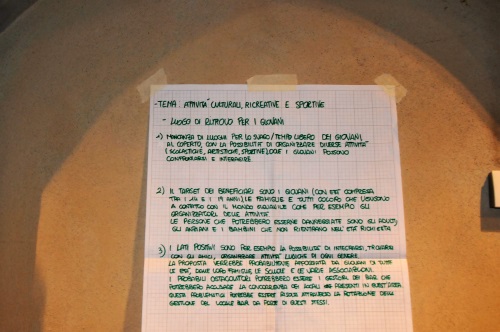 - TEMA: ATTIVITÀ CULTURALI, RICREATIVE E SPORTIVE
- LUOGO DI RITROVO PER I GIOVANI
1) MANCANZA DI LUOGHI PER LO SVAGO/TEMPO LIBERO DEI GIOVANI,
AL COPERTO, CON LA POSSIBILITÀ DI ORGANIZZARE DIVERSE ATTIVITÀ
(SCOLASTICHE, ARTISTICHE, SPORTIVE) DOVE I GIOVANI POSSONO
CONFRONTARSI E INTERAGIRE
2) IL TARGET DEI BENEFICIARI SONO I GIOVANI (CON ETÀ COMPRESA
TRA I 14 E I 19 ANNI), LE FAMIGLIE E TUTTI COLORO CHE VENGONO
A CONTATTO CON IL MONDO GIOVANILE COME PER ESEMPIO GLI
ORGANIZZATORI DELLE ATTIVITÀ.
LE PERSONE CHE POTREBBERO ESSERNE DANNEGGIATE SONO GLI ADULTI,
GLI ANZIANI E I BAMBINI CHE NON RIENTRANO NELL'ETÀ RICHIESTA
3) I LATI POSITIVI SONO PER ESEMPIO LA POSSIBILITÀ DI INTEGRARSI, TROVARSI
CON GLI AMICI, ORGANIZZARE ATTIVITÀ LUDICHE DI OGNI GENERE.
LA PROPOSTA VERREBBE PROBABILMENTE APPOGGIATA DAI GIOVANI DI TUTTE
LE ETÀ, DALLE LORO FAMIGLIE, LE SCUOLE E LE VARIE ASSOCIAZIONI.
I PROBABILI OSTACOLATORI POTREBBERO ESSERE I GESTORI DEI BAR CHE
POTREBBERO ACCUSARE LA CONCORRENZA DEI LOCALI PRESENTI IN QUEST'AREA.
QUESTA PROBLEMATICA POTREBBE ESSERE RISOLTA ATTRAVERSO LA ROTAZIONE DELLA
GESTIONE DEL LOCALE BAR DA PARTE DI QUESTI STESSI.